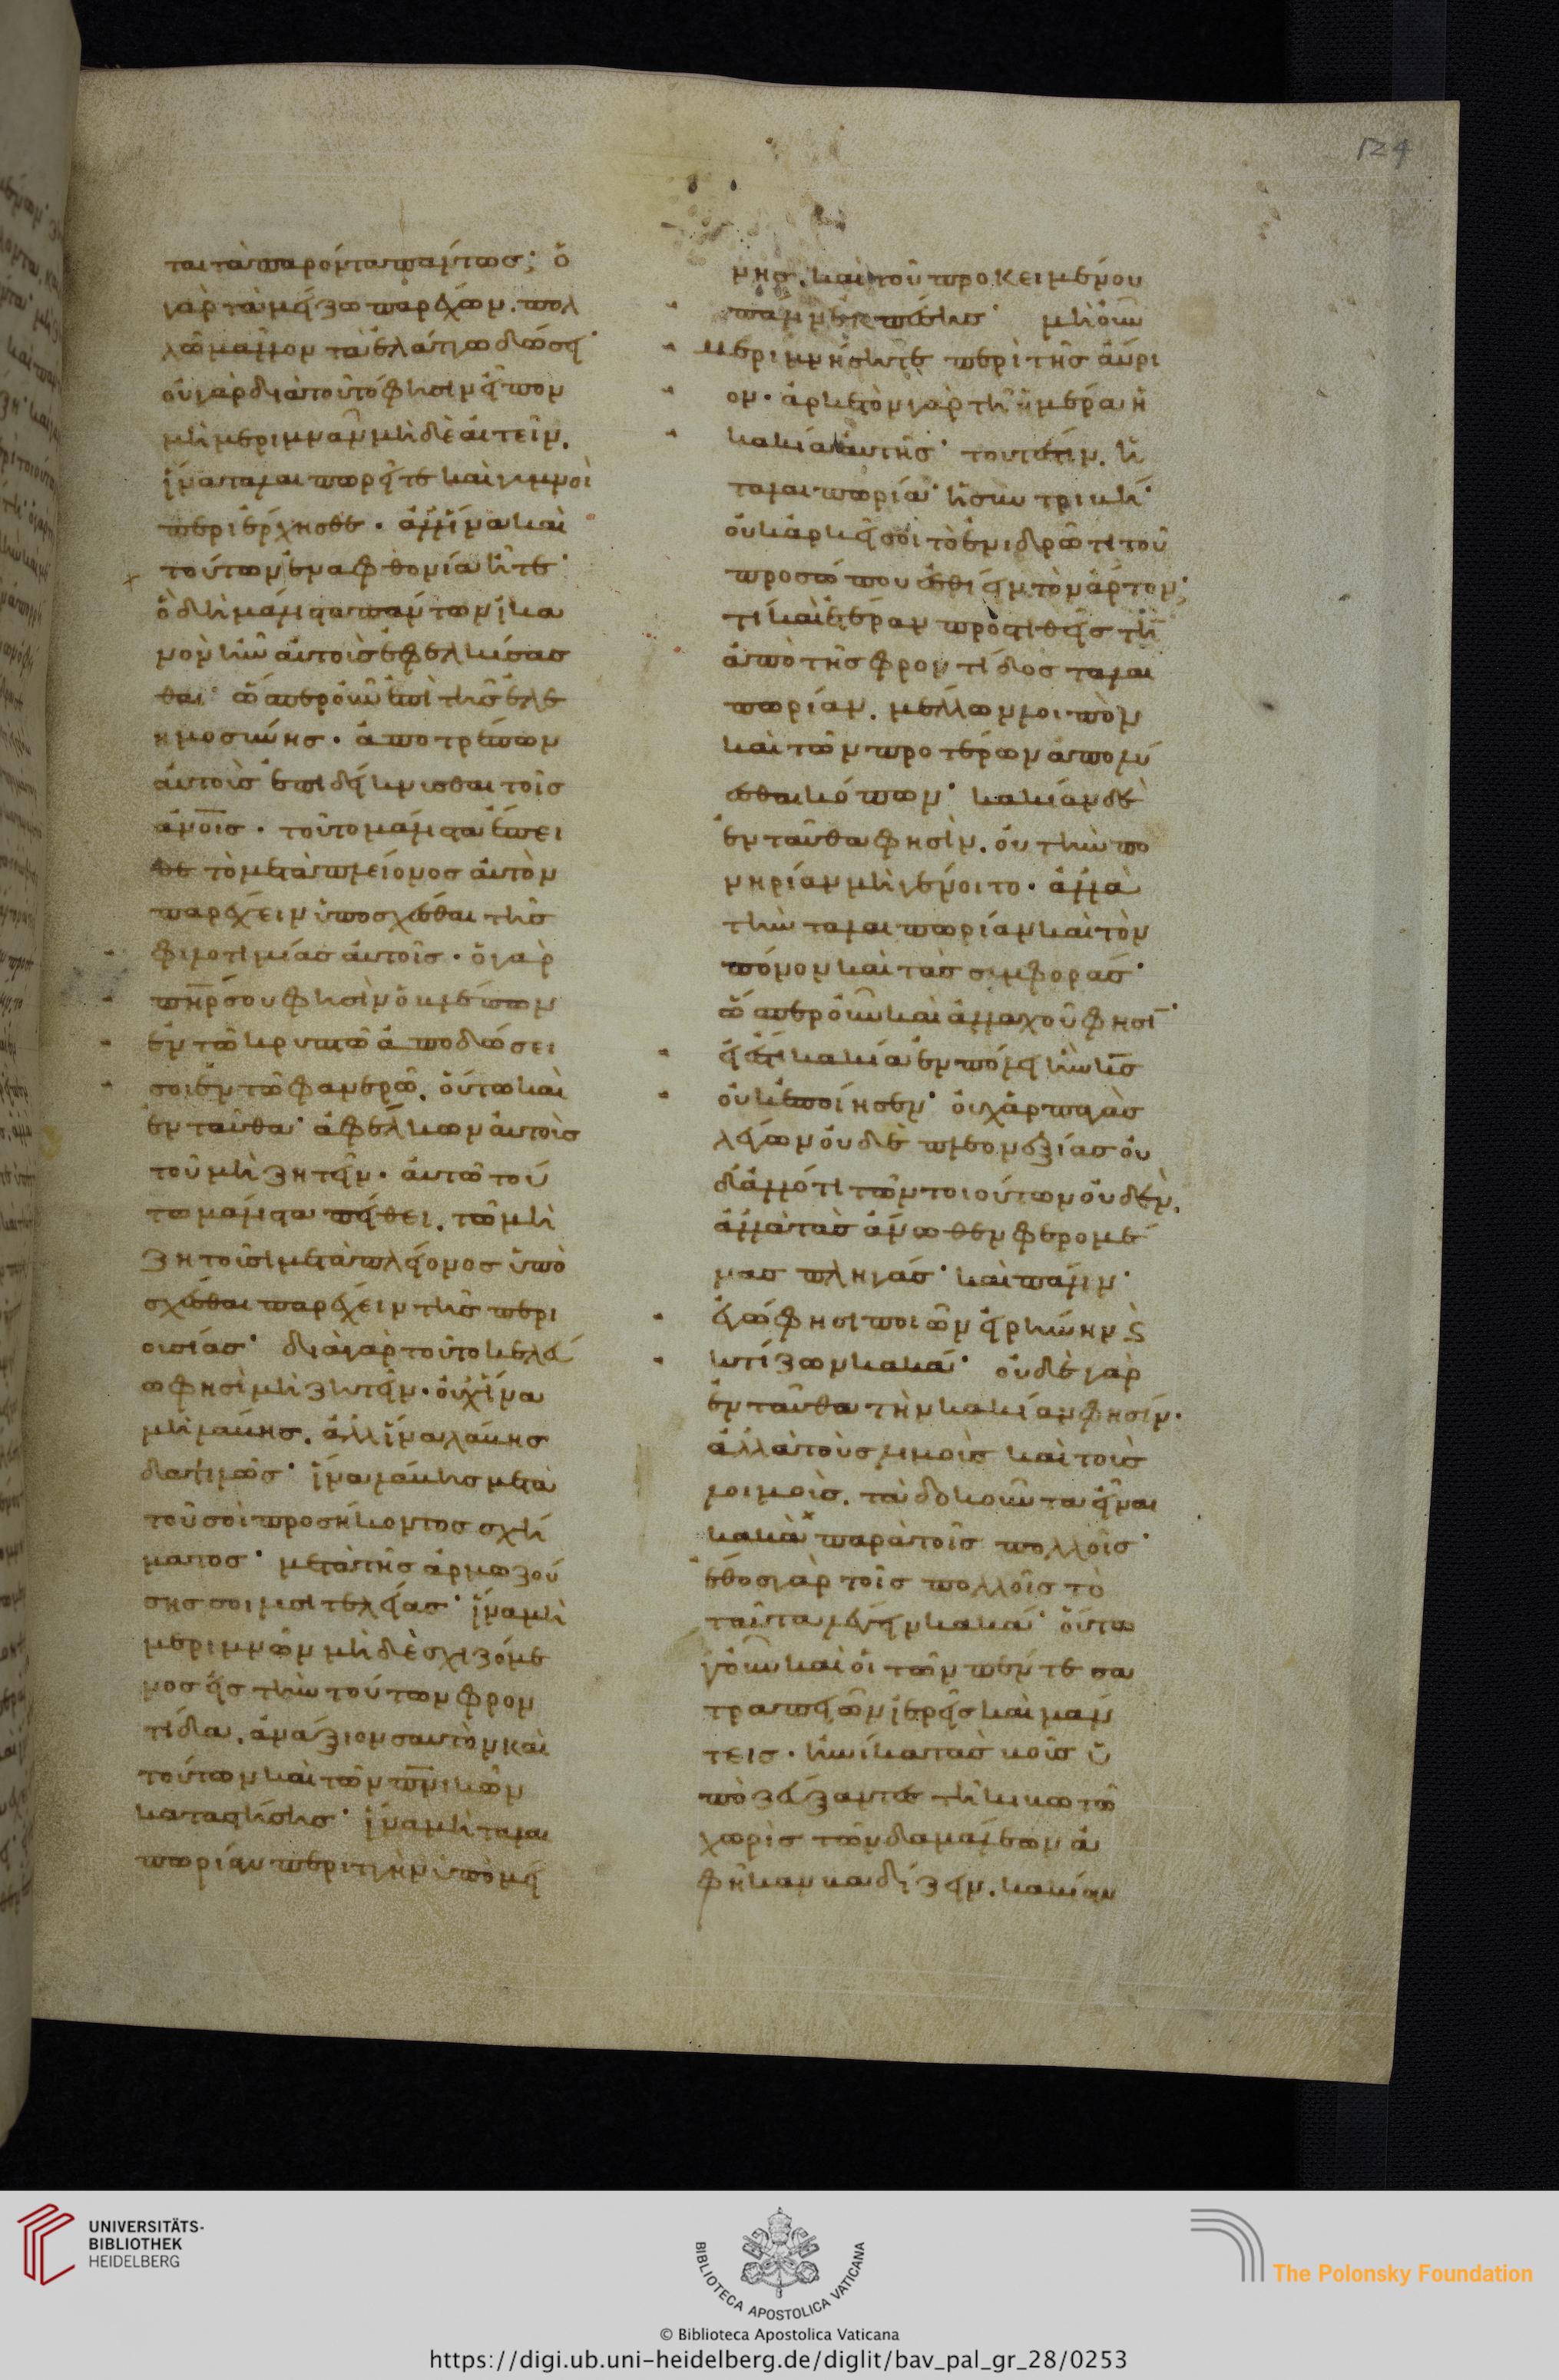 ται τὰ παρόντα πάντως; ὁ
γὰρ τὰ μείζω παρέχων. πολ
λῶ μᾶλλον τὰ ἐλάττω δώσει·
οὐ γὰρ διὰ τοῦτό φησιν εἶπον
μὴ μεριμνᾶν μὴ δὲ αἰτεῖν.
ἵνα ταλαιπωρῆτε καὶ γυμνοὶ
περιέρχησθε· ἀλλ' ἵνα καὶ
τούτων ἐν ἀφθονία ἦτε·
ὃ δὴ μάλιστα πάντων ἱκα
νὸν ἦν αὐτοὺς ἐφελκύσασ
θαι· ὥσπερ οὖν ἐπὶ τῆς ἐλε
ημοσύνης· ἀποτρέπων
αὐτοὺς ἐπιδείκνυσθαι τοῖς
ἀνοις· τοῦτο μάλιστα ἔπει
σε τὸ μετὰ πλείονος αὐτὸν
παρέχειν ὑποσχέσθαι τῆς
φιλοτιμίας αὐτοῖς· ὁ γὰρ
πηρ σου φησὶν ὁ βλέπων
ἐν τῶ κρυπτῶ ἀποδώσει
σοι ἐν τῶ φανερῶ. οὕτω καὶ
ἐνταῦθα ἀφέλκων αὐτοὺς
τοῦ μὴ ζητεῖν· αὐτῶ τού
τω μάλιστα πείθει. τῶ μὴ
ζητοῦσι μετὰ πλείονος ὑπο
σχέσθαι παρέχειν τῆς περι
ουσίας· διὰ γὰρ τοῦτο κελεύ
ω φησὶ μὴ ζητεῖν· οὐχ ἵνα
μὴ λάβης. ἀλλ' ἵνα λάβης
δαψιλῶς· ἵνα λάβης μετὰ
τοῦ σοὶ προσήκοντος σχή
ματος· μετὰ τῆς ἁρμοζού
σης σοι λυσιτελείας· ἵνα μὴ
μεριμνῶν μὴ δὲ σχιζόμε
νος εἰς τὴν τούτων φρον
τίδα. ἀνάξιον σαυτὸν καὶ
τούτων καὶ τῶν πνικῶν
καταστήσης· ἵνα μὴ ταλαι
πωρίαν περιττὴν ὑπομεί
νης. καὶ τοῦ προκειμένου
πάλιν ἐκπέσης· μὴ οὖν
μεριμνήσητε περὶ τῆς αὔρι
ον· ἀρκετὸν γὰρ τῆ ἡμέρα ἡ
κακία αὐτῆς· τουτέστιν. ἡ
ταλαιπωρία· ἡ συντριβή·
οὐκ ἀρκεῖ σοι τὸ ἐν ἱδρῶτι τοῦ
προσώπου ἐσθίειν τὸν ἄρτον;
τί καὶ ἑτέραν προστιθεῖς τὴν
ἀπὸ τῆς φροντίδος ταλαι
πωρίαν. μέλλων λοιπὸν
καὶ τῶν προτέρων ἀπολύ
εσθαι κόπων· κακίαν δὲ
ἐνταῦθα φησὶν. οὐ τὴν πο
νηρίαν μὴ γένοιτο· ἀλλὰ
τὴν ταλαιπωρίαν καὶ τὸν
πόνον καὶ τὰς συμφοράς·
ὥσπερ οὖν καὶ ἀλλαχοῦ φησὶ·
εἰ ἔστι κακία ἐν πόλει ἣν κς
οὐκ ἐποίησεν· οὐχ ἁρπαγὰς
λέγων οὐδὲ πλεονεξίας οὐ
δ' ἄλλό τι τῶν τοιούτων οὐδέν.
ἀλλὰ τὰς ἄνωθεν φερομέ
νας πληγάς· καὶ πάλιν·
ἐγώ φησι ποιῶν εἰρήνην κ
κτίζων κακά· οὐδὲ γὰρ
ἐνταῦθα τὴν κακίαν φησίν.
ἀλλὰ τοὺς λιμοὺς καὶ τοὺς
λοιμοὺς. τὰ δοκοῦντα εἶναι
κακὰ παρὰ τοῖς πολλοῖς·
ἔθος γὰρ τοῖς πολλοῖς τὸ
ταῦτα λέγειν κακά· οὕτω
γοῦν καὶ οἱ τῶν πέντε σα
τραπειῶν ἱερεῖς καὶ μάν
τεις· ἡνίκα τὰς βοῦς ὑ
ποζεύξαντες τῆ κιβωτῶ
χωρὶς τῶν δαμάλεων ἀ
φῆκαν βαδίζειν. κακίαν
124
UNIVERSITÄTS-
BIBLIOTHEK
HEIDELBERG
BIBLIOTECA APOSTOLICA VATICANA
The Polonsky Foundation
© Biblioteca Apostolica Vaticana
https://digi.ub.uni-heidelberg.de/diglit/bav_pal_gr_28/0253